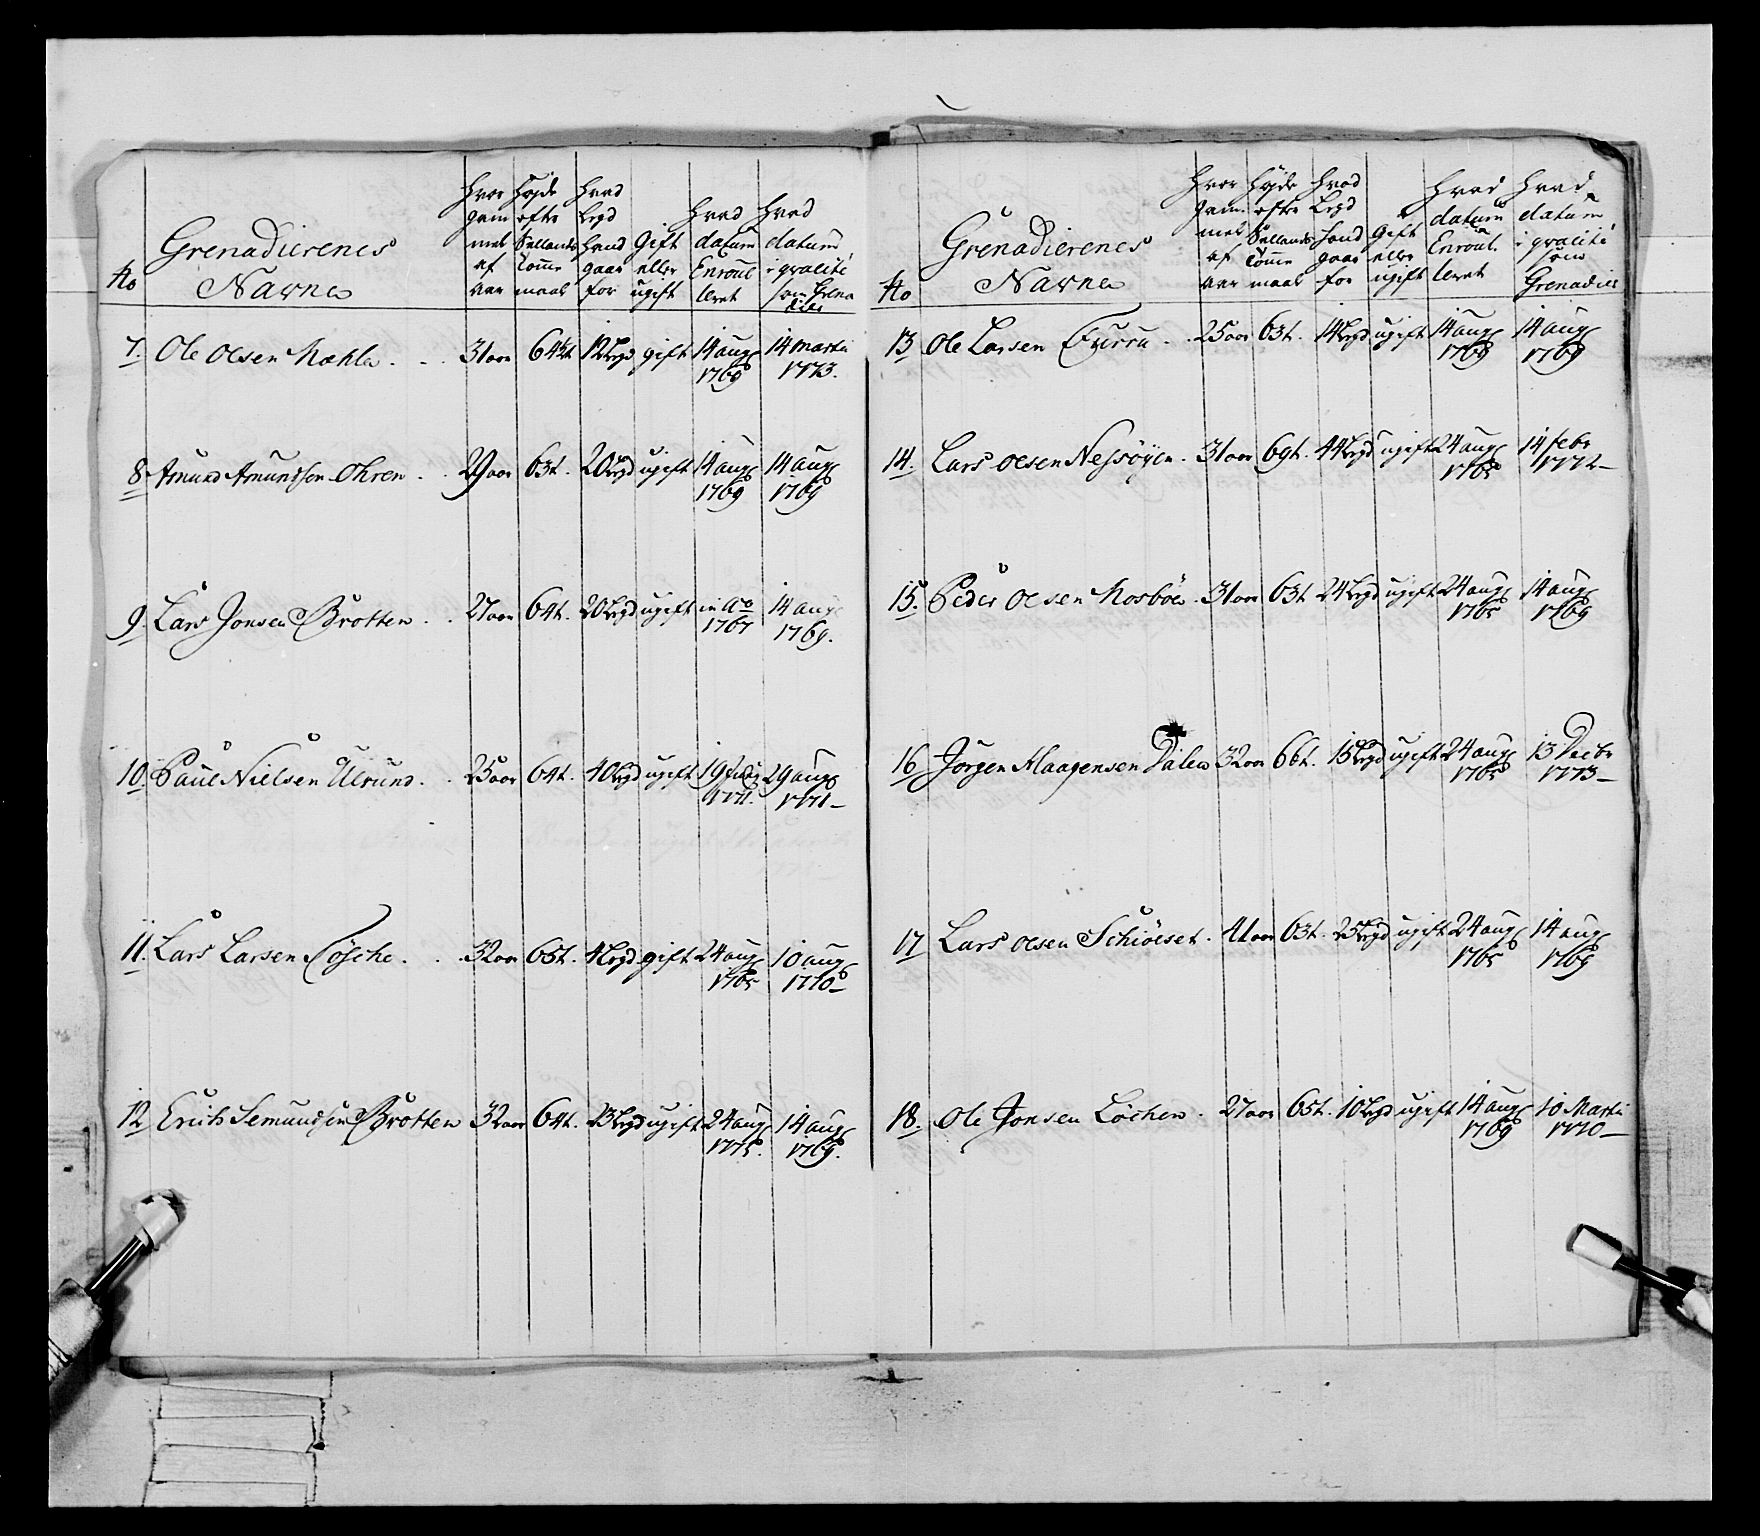 No
Grenadierenes
Navne
Hvor gam mel af aar
Høyde efter Sellands Tomme maal
Hvad Legd Hand gaar for
Gift eller ugift
Hvad datum Enroul leret
Hvad datum i qvalité som Grena dier
7. Ole Olsen Mæhle . . 31 aar 64½ t. 12 Legd gift 14 aug 1769 14 Martii 1773.
8 Amund Amundsen Ohren . . 29 aar 63 t. 20 Legd ugift 14 aug 1769 14 aug 1769
9. Lars Jonsen Brotten . . 27 aar 64 t. 20 Legd ugift in Ao 1767 14 aug 1769.
10. Paul Nielsen Ulvund . . 25 aar 64 t. 40 Legd ugift 19 1771. 29 aug 1771
11. Lars Larsen Løsche . . 32 aar 65 t. 4 Legd gift 24 aug 1765 10 aug 1770
12 Erich Semundsen Brotten 32 aar 64 t. 23 Legd ugift 24 aug 1775. 14 aug 1769.
No
Grenadierenes
Navne
Hvor gam mel af aar
Høide efter Sellands Tomme maal
Hvad Legd Hand gaar for
Gift eller ugift
Hvad datum Enroul leret
Hvad datum i qvalité som Grenadier
13 Ole Larsen Furru . . 25 aar 63 t. 14 Legd ugift 14 aug 1769 14 aug 1769
14. Lars Olsen Nessøyen . 31 aar 69 t. 44 Legd ugift 24 aug 1765 14 febr 1772
15. Peder Olsen Mosbøe . 31 aar 63 t. 24 Legd ugift 24 aug 1765 14 aug 1769
16 Jørgen Haagensen Dalen 32 aar 66 t. 15 Legd ugift 24 aug 1765 13 Decbr 1773
17 Lars Olsen Schiøeset . 41 aar 63 t. 25 Legd ugift 24 aug 1765 14 aug 1769
18. Ole Jonsen Løchen . 27 aar 65 t. 10 Legd ugift 14 aug 1769 10 Martii 1770